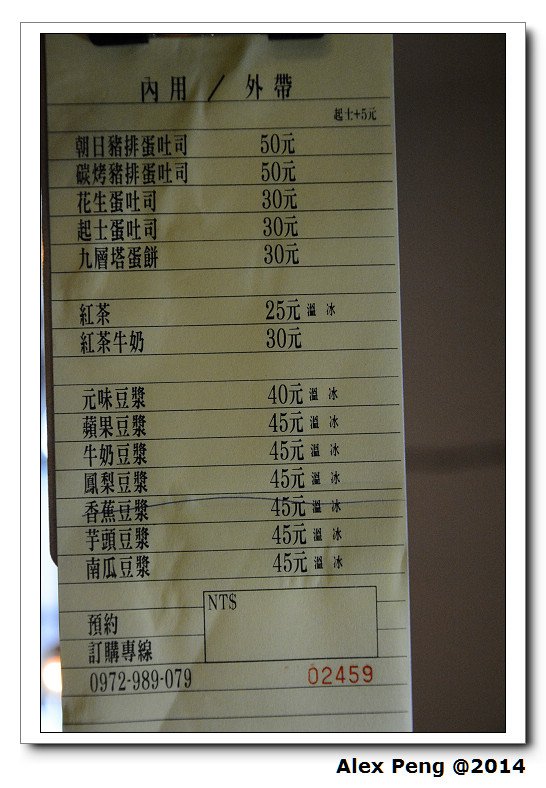 內用 / 外帶
起士+5元
朝日豬排蛋吐司 50元
碳烤豬排蛋吐司 50元
花生蛋吐司 30元
起士蛋吐司 30元
九層塔蛋餅 30元
紅茶 25元 溫 冰
紅茶牛奶 30元
元味豆漿 40元 溫 冰
蘋果豆漿 45元 溫 冰
牛奶豆漿 45元 溫 冰
鳳梨豆漿 45元 溫 冰
香蕉豆漿 45元 溫 冰
芋頭豆漿 45元 溫 冰
南瓜豆漿 45元 溫 冰
NT$
預約
訂購專線
0972-989-079 02459
Alex Peng @2014